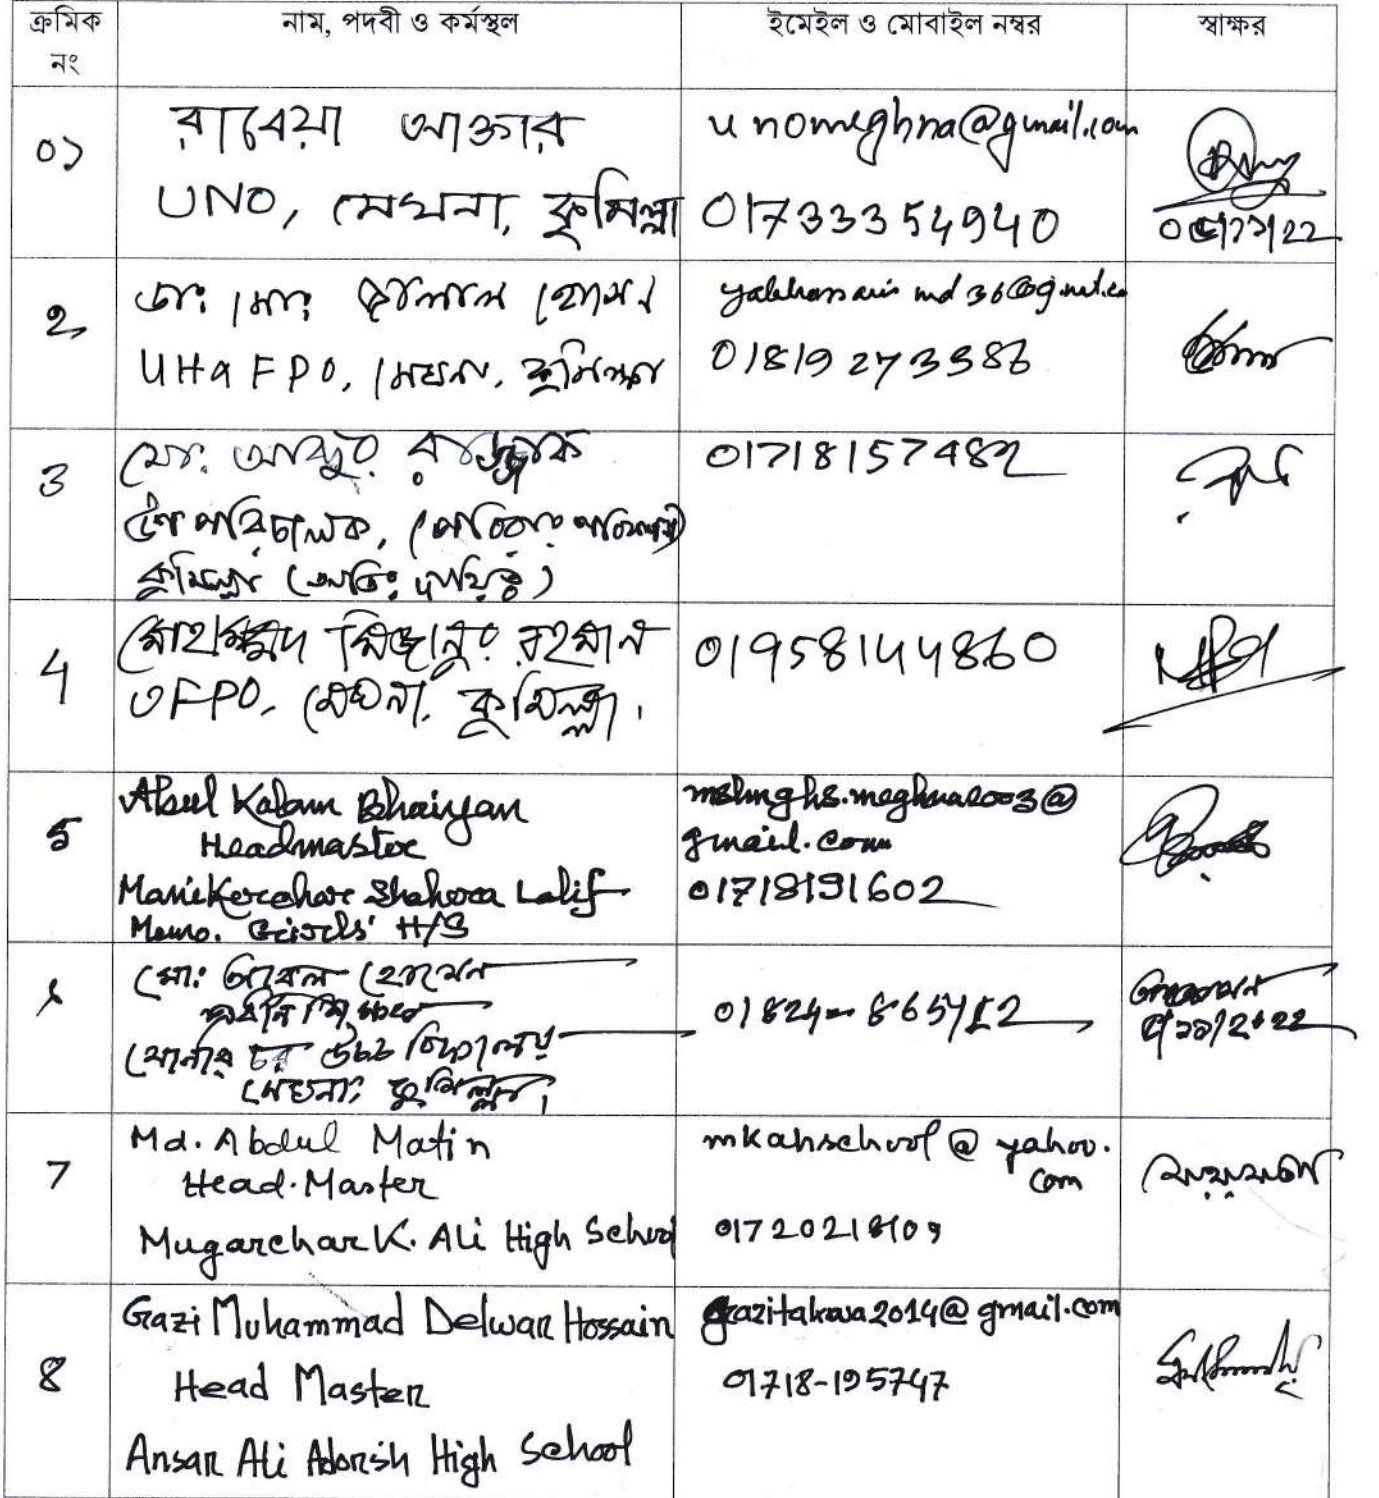 ক্রমিক নং
নাম, পদবী ও কর্মস্থল
ইমেইল ও মোবাইল নম্বর
স্বাক্ষর
০১
রাবেয়া আক্তার
UNO, মেঘনা, কুমিল্লা
unomeghna@gmail.com
01733354940
২
ডাঃ মোঃ জালাল হোসেন
UH&FPO, মেঘনা, কুমিল্লা
01819273386
3
মোঃ আব্দুর রাজ্জাক
উপ পরিচালক, (পরিবার পরিকল্পনা)
কুমিল্লা (অতিঃ দায়িত্ব)
01718157482
4
মোহাম্মদ মিজানুর রহমান
UFPO, মেঘনা, কুমিল্লা।
01958144860
5
Abul Kalam Bhaiyan
Headmaster
Manikerchar Shahera Latif
Memo. Girls' H/S
gmail.com
01718191602
৬
মোঃ হোসেন
প্রধান শিক্ষক
সোনার চর উচ্চ বিদ্যালয়
মেঘনা, কুমিল্লা।
7
Md. Abdul Matin
Head. Master
Mugarchar K. Ali High School
mkahschool@yahoo.
com
01720218109
8
Gazi Muhammad Delwar Hossain
Head Master
Ansar Ali Adorsih High School
gazitakwa2014@gmail.com
01718-195747